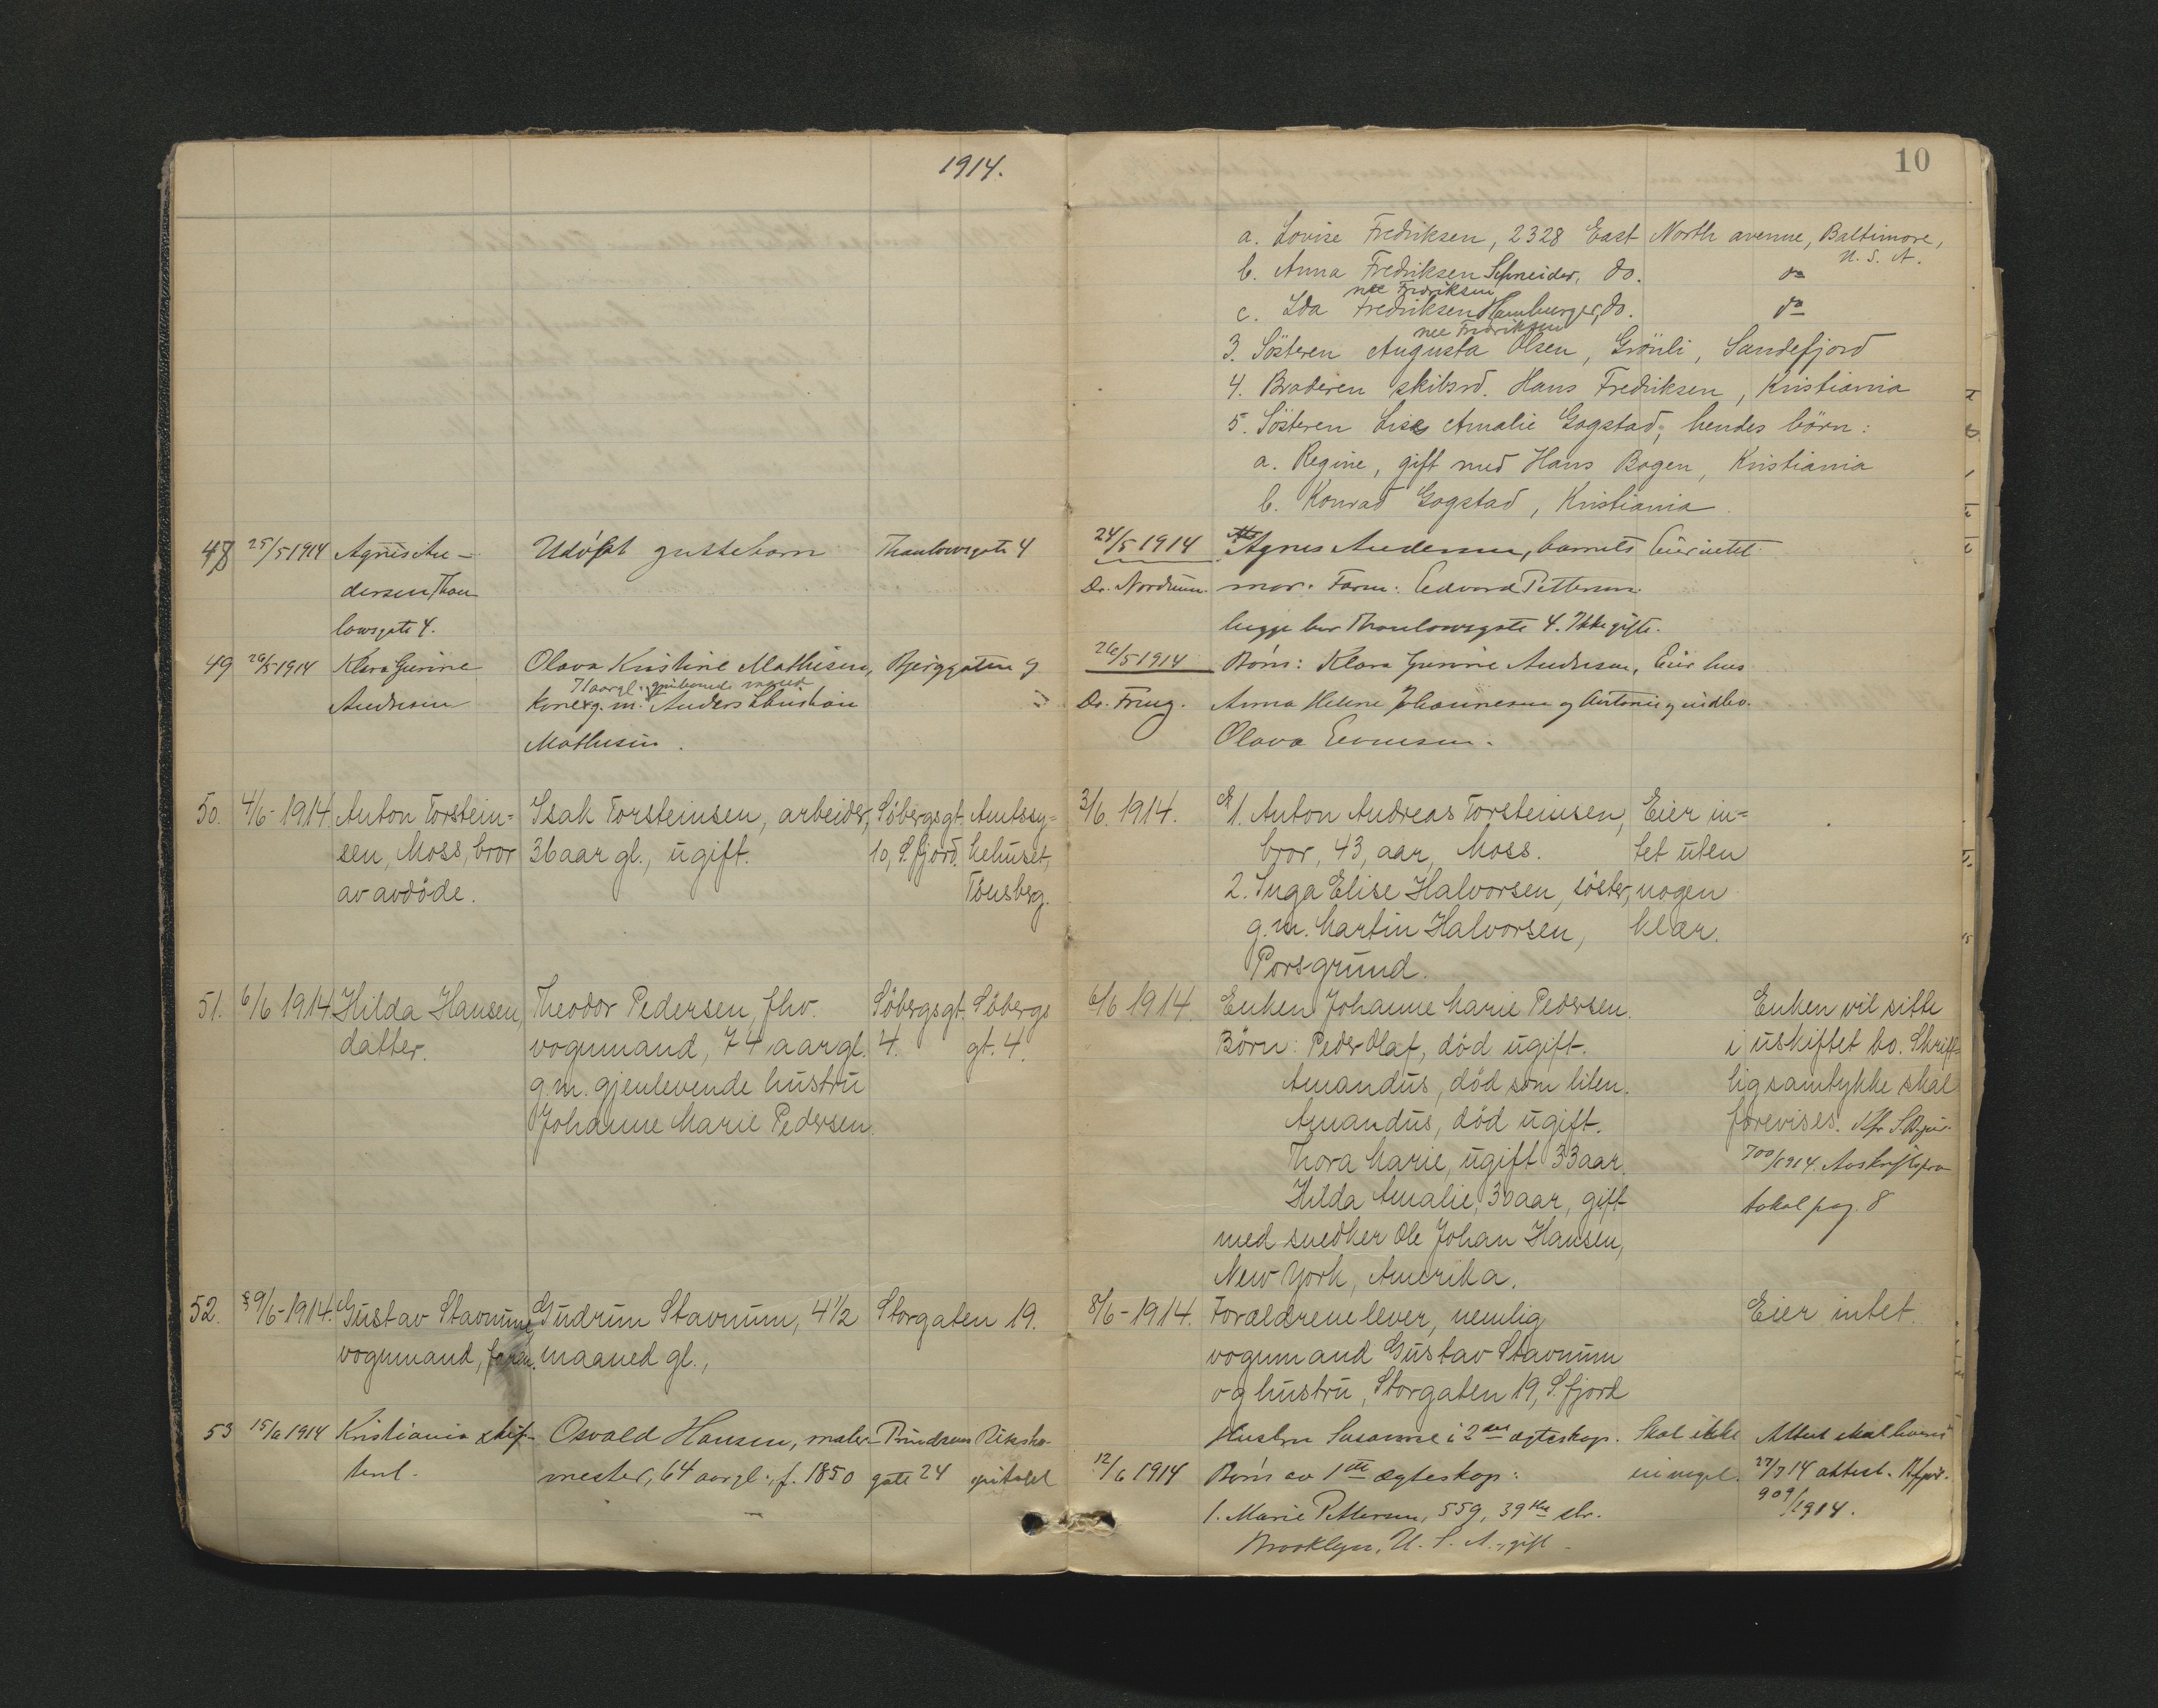 1914.
10
a. Lovise Fredriksen, 2328 East North avenue, Baltimore,
U. S. A.
b. Anna Fredriksen Schneider, do. do
nee Fredriksen
c. Ida Fredriksen Hamburger, do. do
nee Fredriksen
3. Søsteren Augusta Olsen, Grönli, Sandefjord
4. Broderen skibsrd. Hans Fredriksen, Kristiania
5. Søsteren Lise Amalie Gogstad; hendes börn:
a. Regine, gift med Hans Bogen, Kristiania
b. Konrad Gogstad, Kristiania
48 25/5 1914 Agnes An- Udöpt guttebarn Thaulowsgate 4 24/5 1914 Agnes Andersen, barnets Eier intet
dersen Thau Dr. Nordrum. mor. Farm: Edvard Pettersen.
lowsgate 4. begge bor Thaulowsgate 4. Ikke gifte.
49 26/5 1914 Klara Gurine Olava Kristine Mathisen, Bjerggaten 9 26/5 1914 Börn: Klara Gurine Andresen, Eier hus
71 aar gl. gjenlevende mand
Andresen Kone g. m. Anders Christian Dr. Anna Helene Johannesen og Antonie og indbo.
Mathisen. Olava Evensen.
50. 4/6-1914. Anton Torstein= Isak Torsteinsen, arbeider, Söbergsgt. Amtssy= 3/6. 1914. 1. Anton Andreas Torsteinsen, Eier in=
sen, Moss, bror 36 aar gl., ugift. 10, S.fjord. kehuset, bror, 43, aar, Moss. tet uten
av avdöde. Tönsberg. 2. Inga Elise Halvorsen, söster, nogen
g. m. Martin Halvorsen, klær.
Porsgrund.
51. 6/6 1914 Hilda Hansen, Theodor Pedersen, fhv. Söbergsgt. Söbergs 6/6 1914. Enken Johanne Marie Pedersen. Enken vil sitte
datter. vognmand, 74 aar gl. 4. gt. 4. Börn: Peder Olaf, död ugift. i uskiftet bo. Skrift=
g. m. gjenlevende hustru Amandus, död som liten. lig samtykke skal
Johanne Marie Pedersen. Amandus, död ugift. forevises. Kfr.
Thora Marie, ugift 33 aar. 700/1914. Avskriftspro
Hilda Amalie, 30 aar, gift tokol pag. 8
med snedker Ole Johan Hansen,
New York, Amerika.
52. 9/6-1914. Gustav Stavnum, Gudrun Stavnum, 4½ Storgaten 19. 8/6-1914. Forældrene lever, nemlig Eier intet.
vognmand, maaned gl., vognmand Gustav Stavnum
og hustru, Storgaten 19, S.fjord
53 15/6 1914 Kristiania skif- Osvald Hansen, maler- Prindsens Riksho- Hustru Susanne i 2det ægteskap. Skal ikke Attest skal
teret. mester, 64 aar gl., f. 1850 gate 24 spitalet 12/6 1914 Börn av 1ste ægteskap: eie noget. 27/7 14 attest.
1. Marie Pettersen, 559, 39the str. 909/1914.
Brooklyn, U. S. A., gift